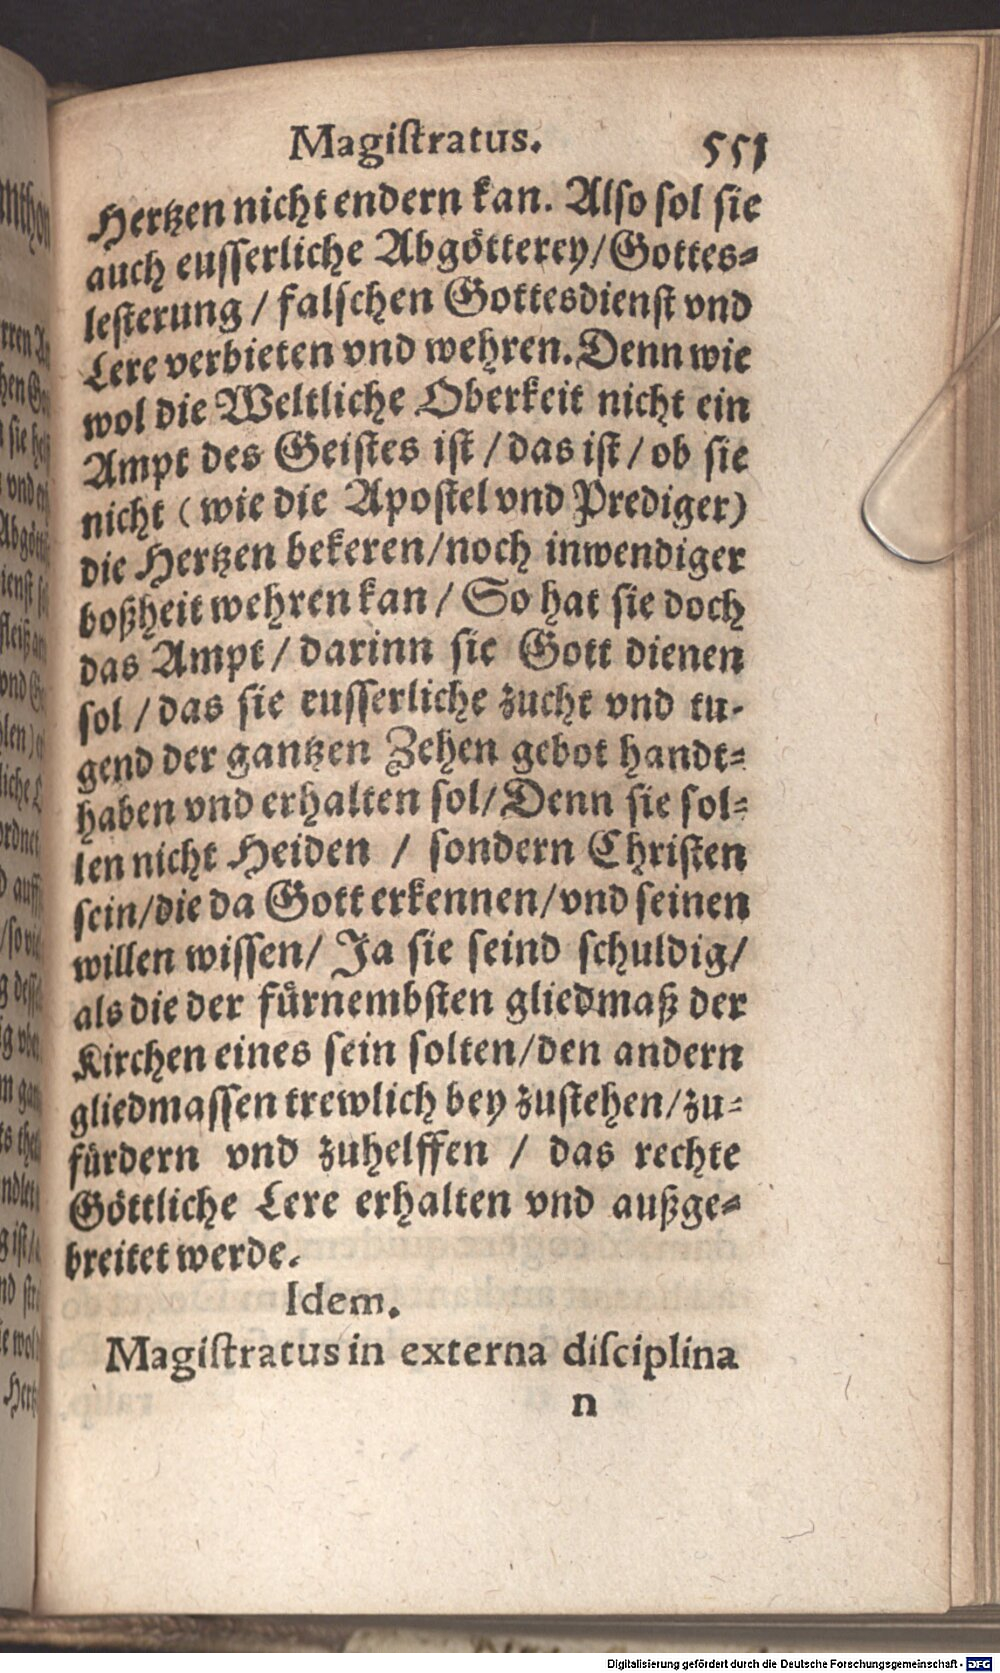 Magiſtratus. 551
Hertzen nicht endern kan. Also sol sie
auch eusserliche Abgötterey/Gottes-
lesterung / falschen Gottesdienst vnd
Lere verbieten vnd wehren. Denn wie
wol die Weltliche Oberkeit nicht ein
Ampt des Geistes ist / das ist / ob sie
nicht (wie die Apostel vnd Prediger)
die Hertzen bekeren/noch inwendiger
boßheit wehren kan / So hat sie doch
das Ampt / darinn sie Gott dienen
sol / das sie eusserliche zucht vnd tu-
gend der gantzen Zehen gebot handt-
haben vnd erhalten sol/ Denn sie sol-
len nicht Heiden / sondern Christen
sein/die da Gott erkennen/vnd seinen
willen wissen/ Ja sie seind schuldig/
als die der fürnembsten gliedmaß der
Kirchen eines sein solten/den andern
gliedmassen trewlich bey zustehen/zu-
fürdern vnd zuhelffen / das rechte
Göttliche Lere erhalten vnd außge-
breitet werde.
Idem.
Magiſtratus in externa diſciplina
n
Digitalisierung gefördert durch die Deutsche Forschungsgemeinschaft - DFG